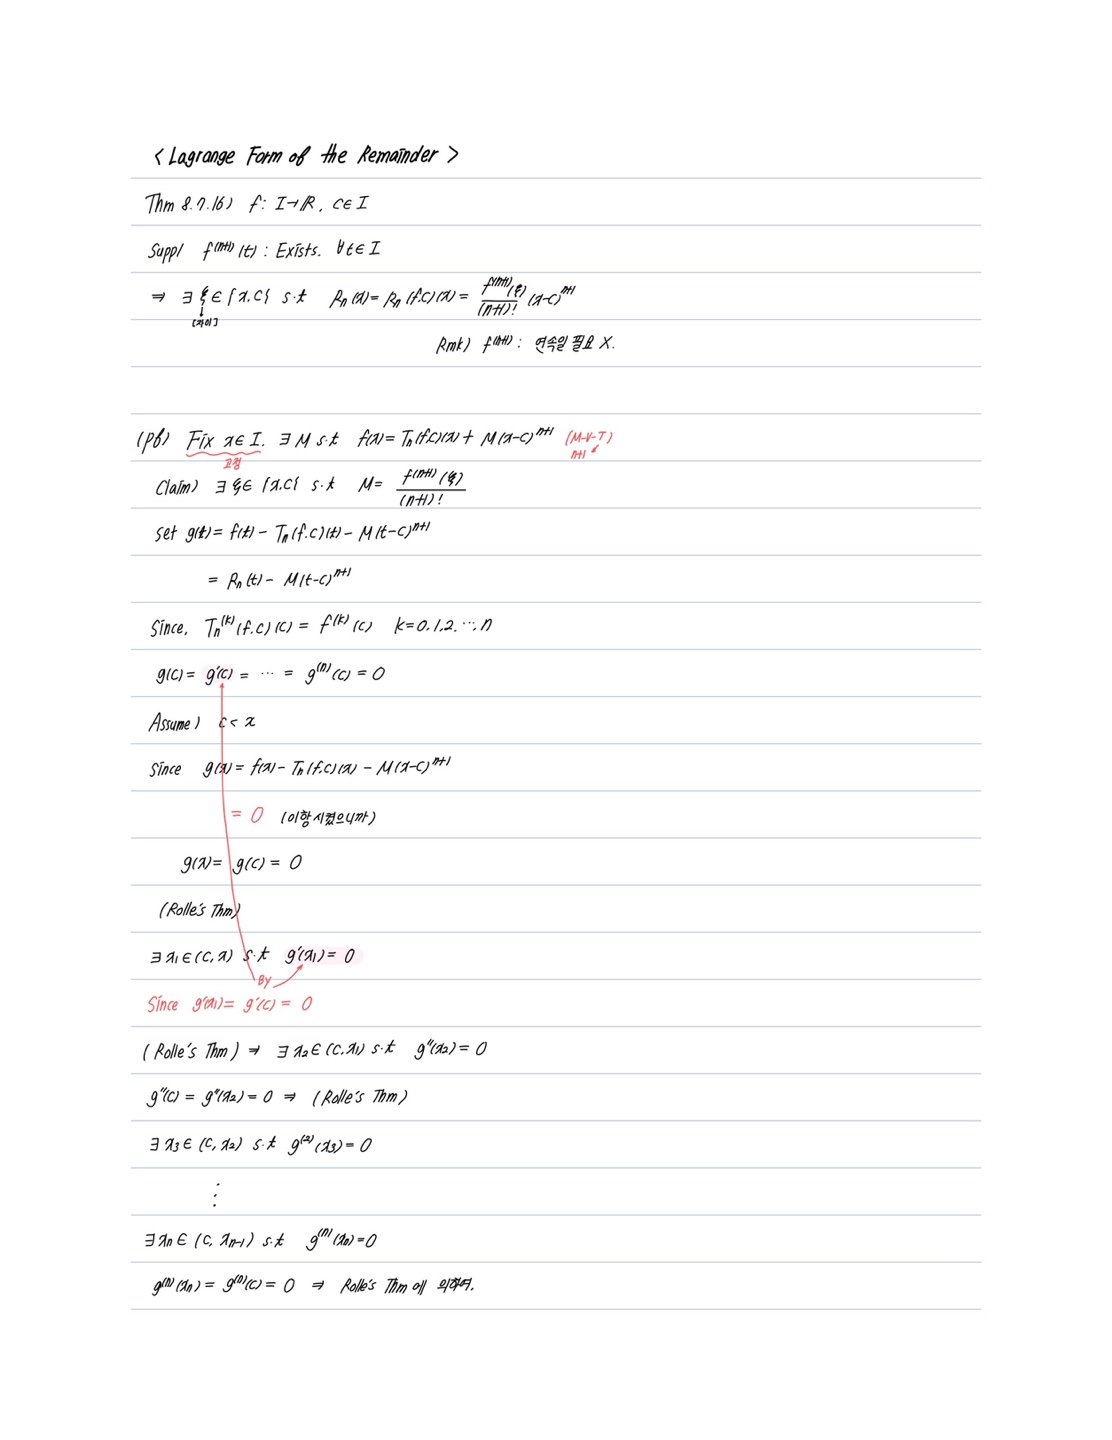 < Lagrange Form of the Remainder >
Thm 8.7.16) f: I→ℝ, c∈I
Supp) f^(n+1)(t) : Exists. ∀t∈I
⇒ ∃ξ∈{x,c} s.t Rn(x) = Rn(f,c)(x) = f^(n+1)(ξ)/(n+1)! (x-c)^n+1
↓
[사이]
Rmk) f^(n+1) : 연속일 필요 X.
(pf) Fix x∈I. ∃M s.t f(x) = Tn(f,c)(x) + M(x-c)^n+1 (M-V-T)
고정 n+1
Claim) ∃ξ∈{x,c} s.t M = f^(n+1)(ξ)/(n+1)!
set g(t) = f(t) - Tn(f,c)(t) - M(t-c)^n+1
= Rn(t) - M(t-c)^n+1
Since, Tn^(k)(f,c)(c) = f^(k)(c) k=0,1,2,…,n
g(c) = g'(c) = ⋯ = g^(n)(c) = 0
Assume) c < x
Since g(x) = f(x) - Tn(f,c)(x) - M(x-c)^n+1
= 0 (이항시켰으니까)
g(x) = g(c) = 0
(Rolle's Thm)
∃x₁∈(c,x) s.t g'(x₁) = 0
By
Since g'(x₁) = g'(c) = 0
(Rolle's Thm) ⇒ ∃x₂∈(c,x₁) s.t g''(x₂) = 0
g''(c) = g''(x₂) = 0 ⇒ (Rolle's Thm)
∃x₃∈(c,x₂) s.t g^(3)(x₃) = 0
⋮
∃xn∈(c,xn-1) s.t g^(n)(xn) = 0
g^(n)(xn) = g^(n)(c) = 0 ⇒ Rolle's Thm에 의하여.